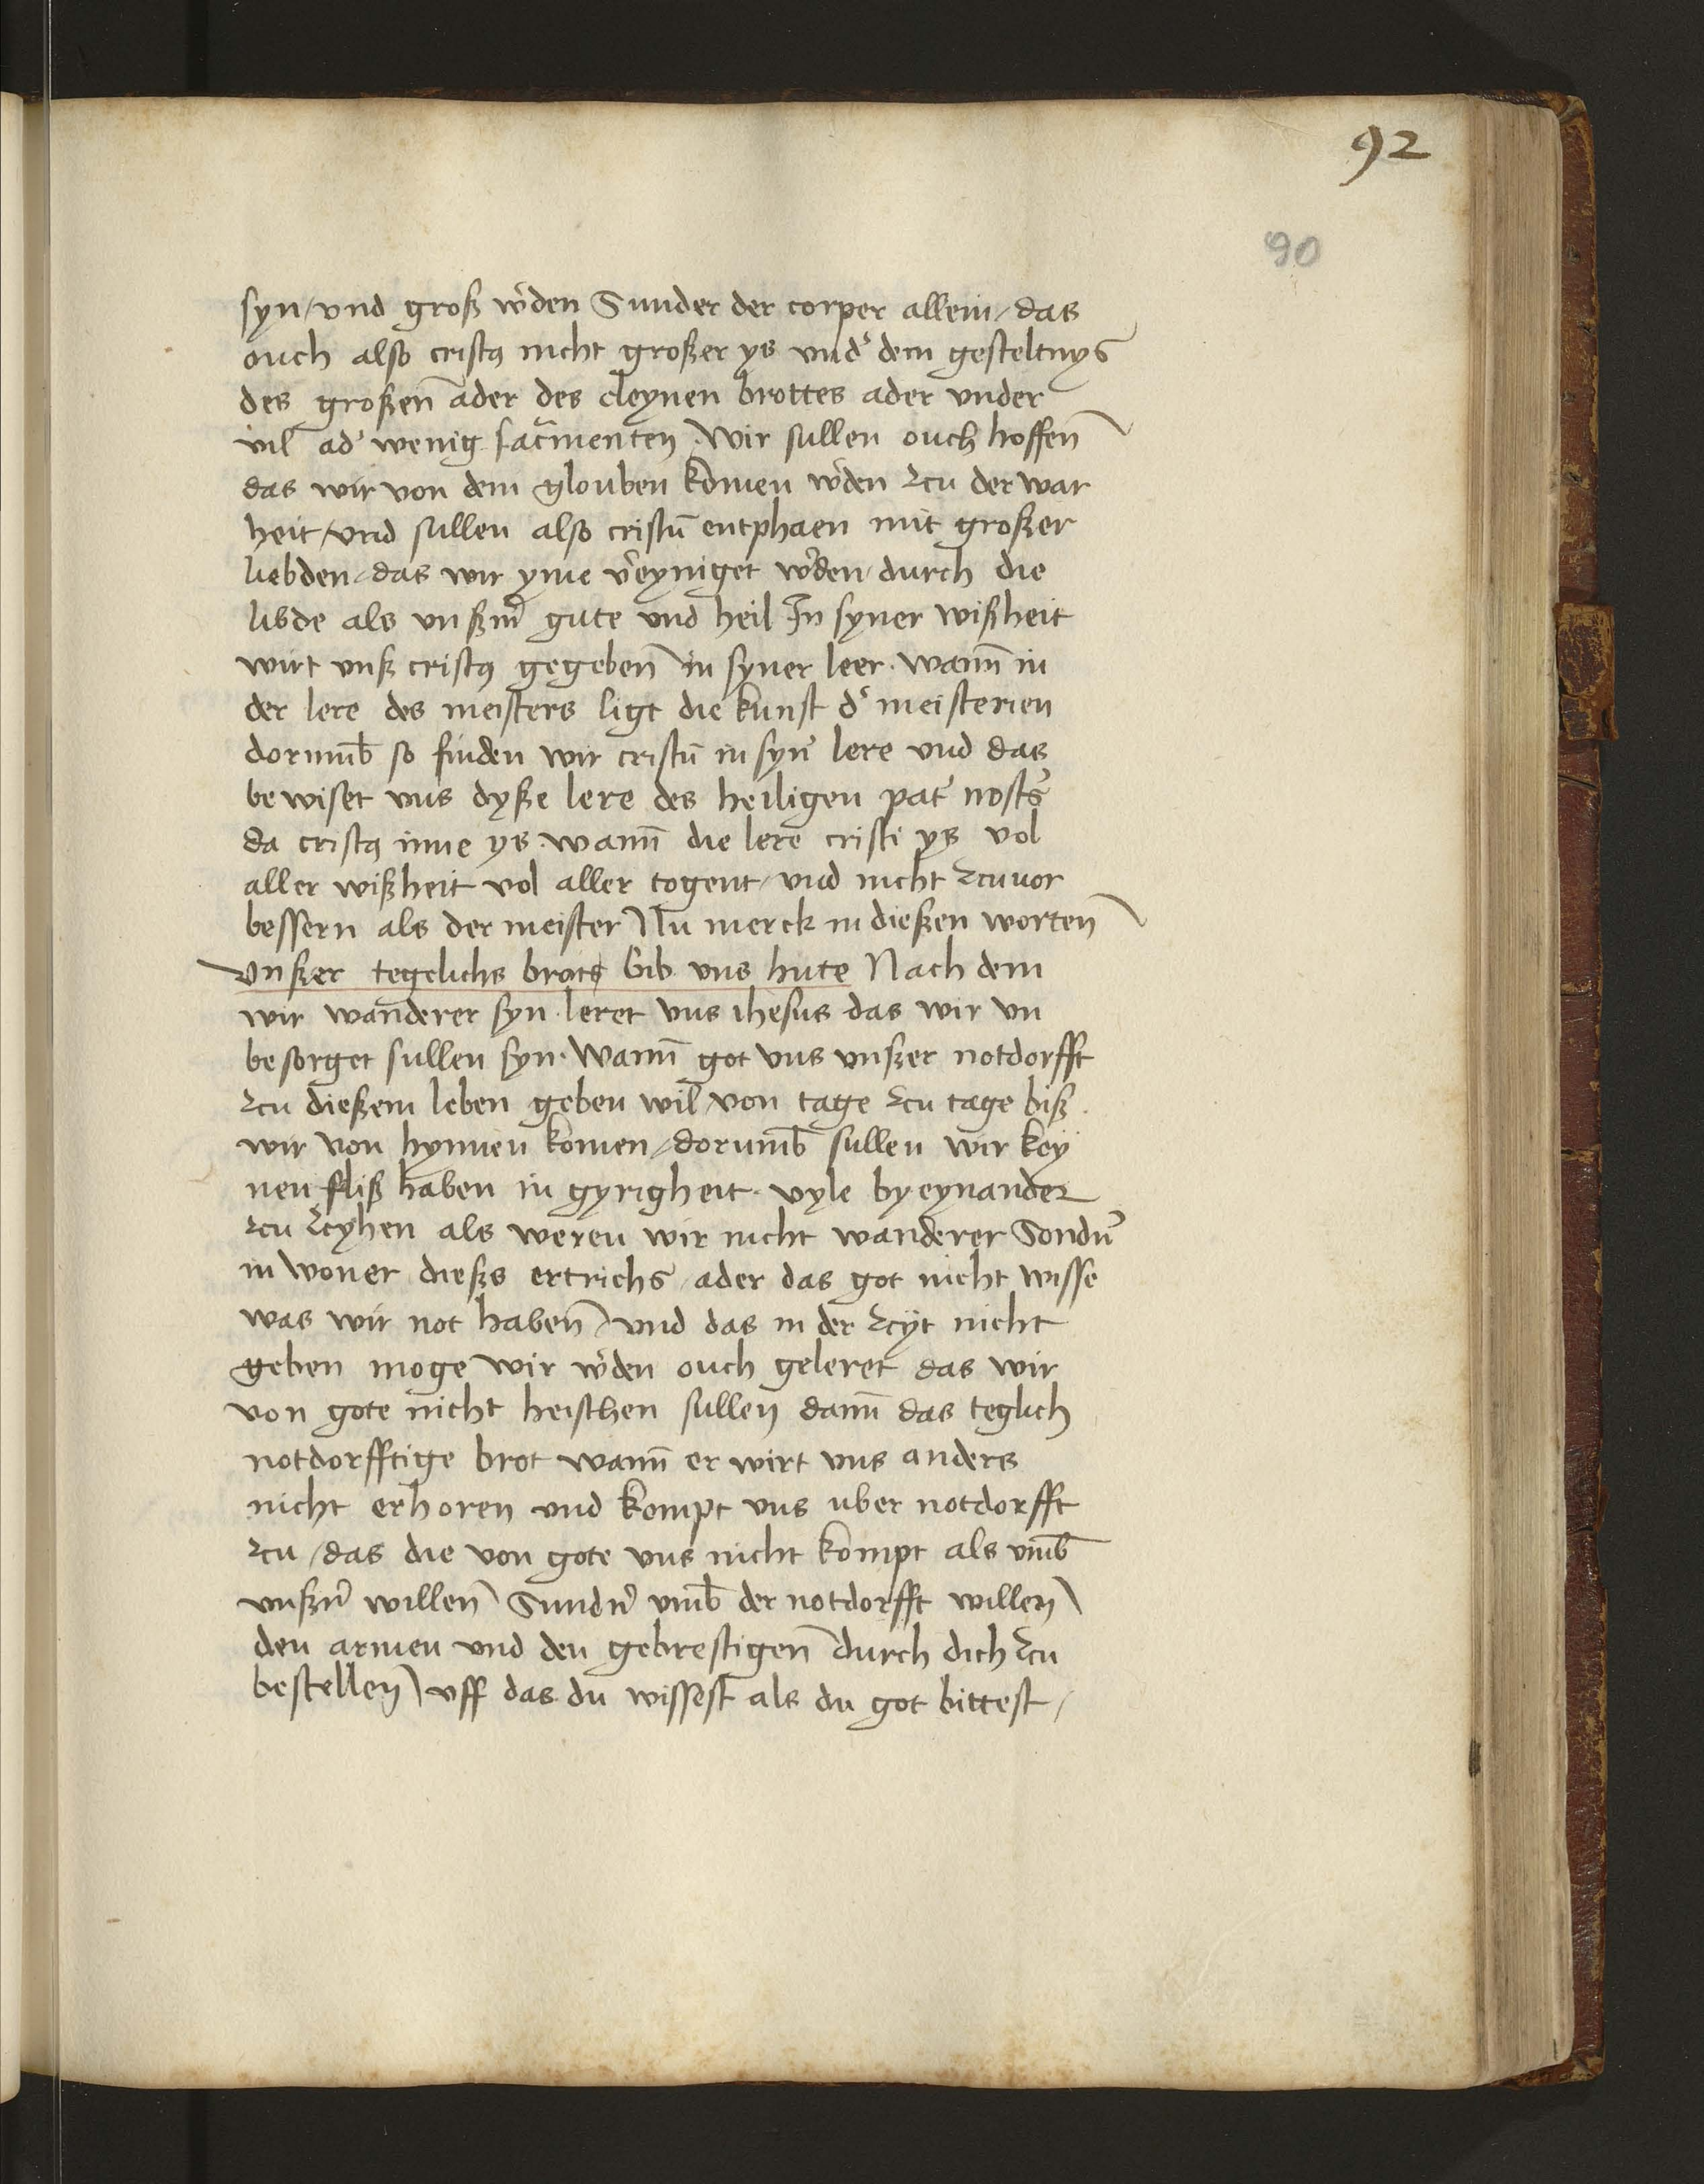 92
90
syn / vnd groß w᷑den Sunder der corper allein / das
ouch also cristꝯ nicht großer ys vnd᷑ dem gesteltnys
des großen̄ ader des cleynen brottes ader vnder
vil ad᷑ wenig sac᷑menten · Wir sullen ouch hoffen̄
das wir von dem glouben komen w᷑den zcu der war
heit / vnd sullen also cristū entphaen mit großer
liebden / das wir yme v᷑eyniget w᷑den durch die
libde als vnßm᷑ gute vnd heil In syner wißheit
wirt vnß cristꝯ gegeben̄ in syner leer · wann̄ in
der lere des meisters ligt die kunst d᷑ meisterien
dorumb̄ so finden wir cristū in syn᷑ lere vnd das
bewiset vns dyße lere des heiligen pat᷑ nost᷑
da cristꝯ inne ys · wann̄ die lere cristi ys vol
aller wißheit vol aller togent / vnd nicht zcuuor
bessern als der meister Nu merck in dießen worten̄
Vnßer tegelichs brots Gib vns hute Nach dem
wir wanderer syn · leret vns ihesus das wir vn
besorget sullen syn · Wann̄ got vns vnßer notdorfft
zcu dießem leben geben wil / von tage zcu tage biß
wir von hynnen komen / dorumb̄ sullen wir key
nen fliß haben in gyrigheit · vyle by eynander
zcu zcyhen als weren wir nicht wanderer Sondn᷑
in woner dießs ertrichs / ader das got nicht wisse
was wir not haben̄ / vnd das in der zcyt nicht
geben moge Wir w᷑den ouch geleret das wir
von gote nicht heischen sullen dann̄ das teglich
notdorfftige brot wann̄ er wirt vns anders
nicht erhoren vnd kompt vns uber notdorfft
zcu / das die von gote vns nicht kompt als vmb̄
vnßn᷑ willen̄ Sundn᷑ vmb̄ der notdorfft willen
den armen vnd den gebrestigen̄ durch dich zcu
bestellen / vff das du wissest als du got bittest /